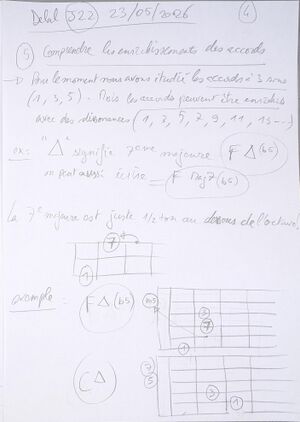 Debal J22 23/05/2026 4
5 Comprendre les enrichissements des accords
→ Pour le moment nous avons étudié les accords à 3 sons
(1, 3, 5). Mais les accords peuvent être enrichis
avec des dissonances (1, 2, 5, 7, 9, 11, 13 ...)
ex: "Δ" signifie 7eme majeure F Δ(b5)
on peut aussi écrire = F Maj7 (b5)
La 7e majeure est juste 1/2 ton au dessous de l'octave.
7
1
exemple : F Δ (b5)
b5
3
7
1
C Δ
7
5
3
1